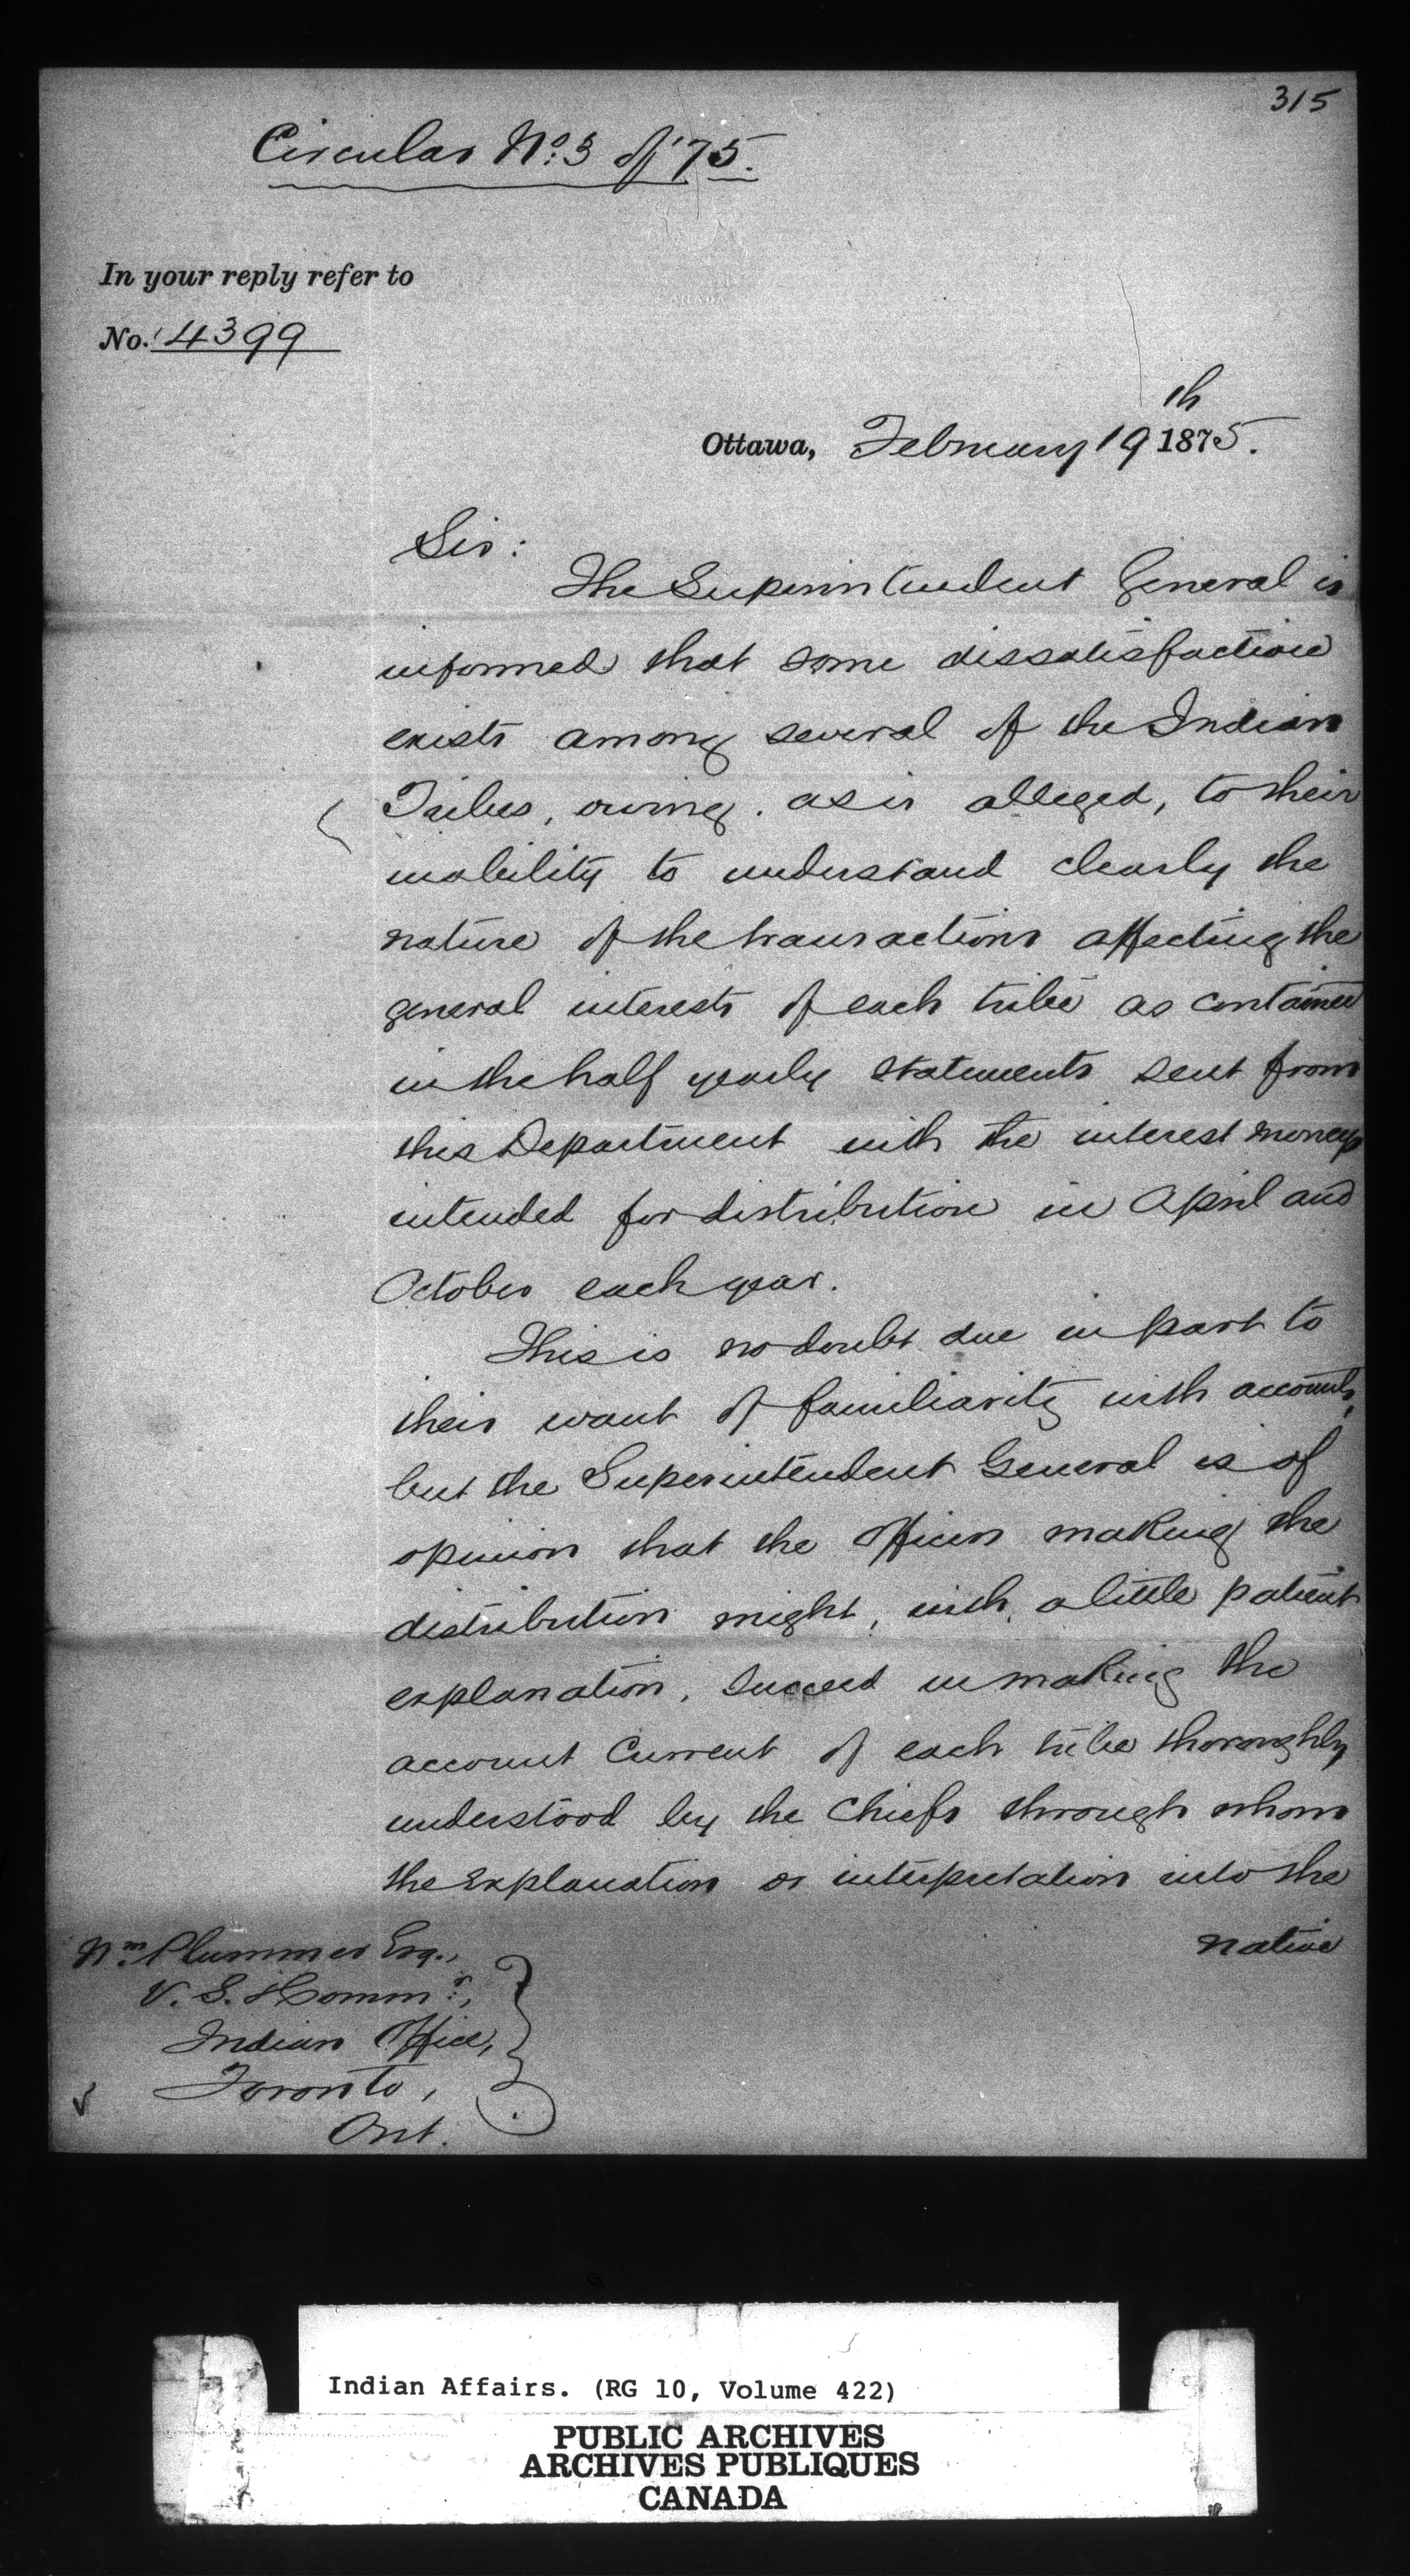 315
Circular No. 3 of '75.
In your reply refer to
No. 4399
CANADA
Ottawa, February 19th 1875.
Sir:
The Superintendent General is
informed that some dissatisfaction
exists among several of the Indian
Tribes, owing, as is alleged, to their
inability to understand clearly the
nature of the transactions affecting the
general interests of each tribe as contained
in the half yearly statements sent from
this Department with the interest moneys
intended for distribution in April and
October each year.
This is no doubt due in part to
their want of familiarity with accounts,
but the Superintendent General is of
opinion that the officer making the
distribution might, with a little patient
explanation, succeed in making the
account Current of each tribe thoroughly
understood by the Chiefs through whom
the explanation or interpretation into the
native
Wm. Plummer Esq.,
V. S. & Commr.,
Indian Office,
Toronto,
Ont.
Indian Affairs. (RG 10, Volume 422)
PUBLIC ARCHIVES
ARCHIVES PUBLIQUES
CANADA